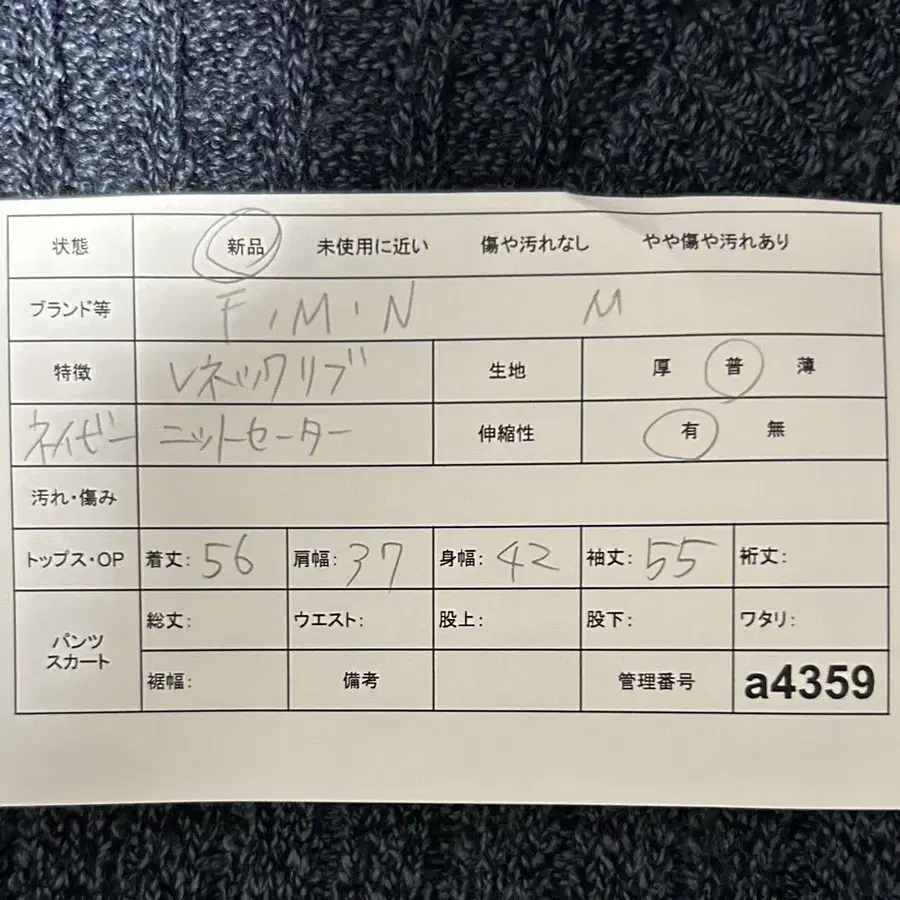 状態 新品 未使用に近い 傷や汚れなし やや傷や汚れあり
ブランド等 F.M.N M
特徴 Vネックリブ 生地 厚 普 薄
ネイビー ニットセーター 伸縮性 有 無
汚れ・傷み
トップス・OP 着丈: 56 肩幅: 37 身幅: 42 袖丈: 55 裄丈:
パンツ スカート 総丈: ウエスト: 股上: 股下: ワタリ:
裾幅: 備考 管理番号 a4359